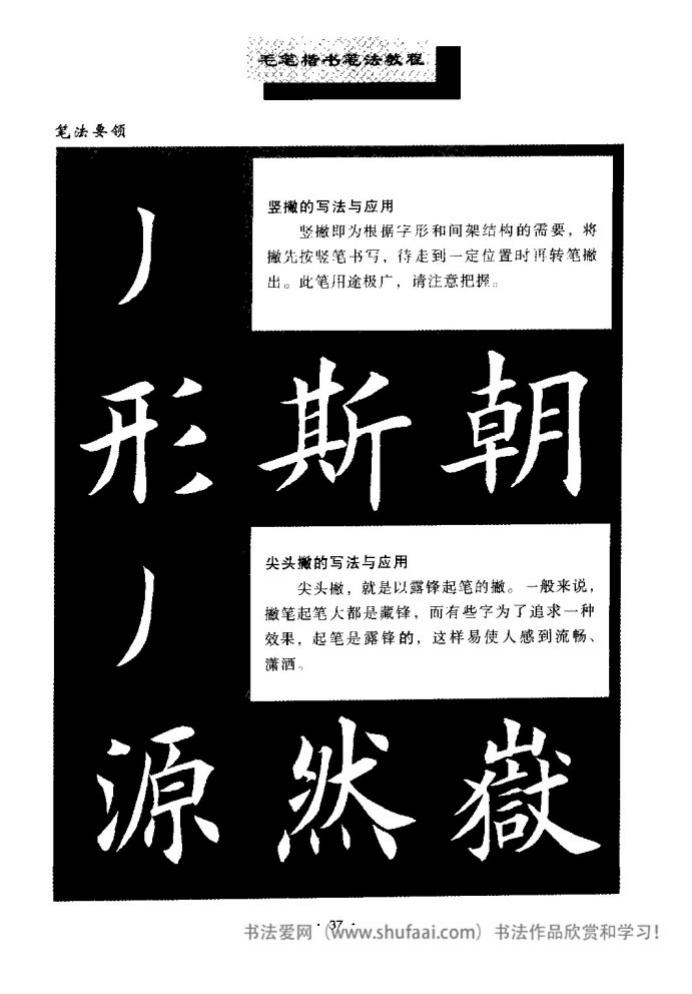 毛笔楷书笔法教程
笔法要领
丿
竖撇的写法与应用
竖撇即为根据字形和间架结构的需要，将
撇先按竖笔书写，待走到一定位置时再转笔撇
出。此笔用途极广，请注意把握。
形 斯 朝
丿
尖头撇的写法与应用
尖头撇，就是以露锋起笔的撇。一般来说，
撇笔起笔大都是藏锋，而有些字为了追求一种
效果，起笔是露锋的，这样易使人感到流畅、
潇洒。
源 然 嶽
· 37 ·
书法爱网（www.shufaai.com）书法作品欣赏和学习！